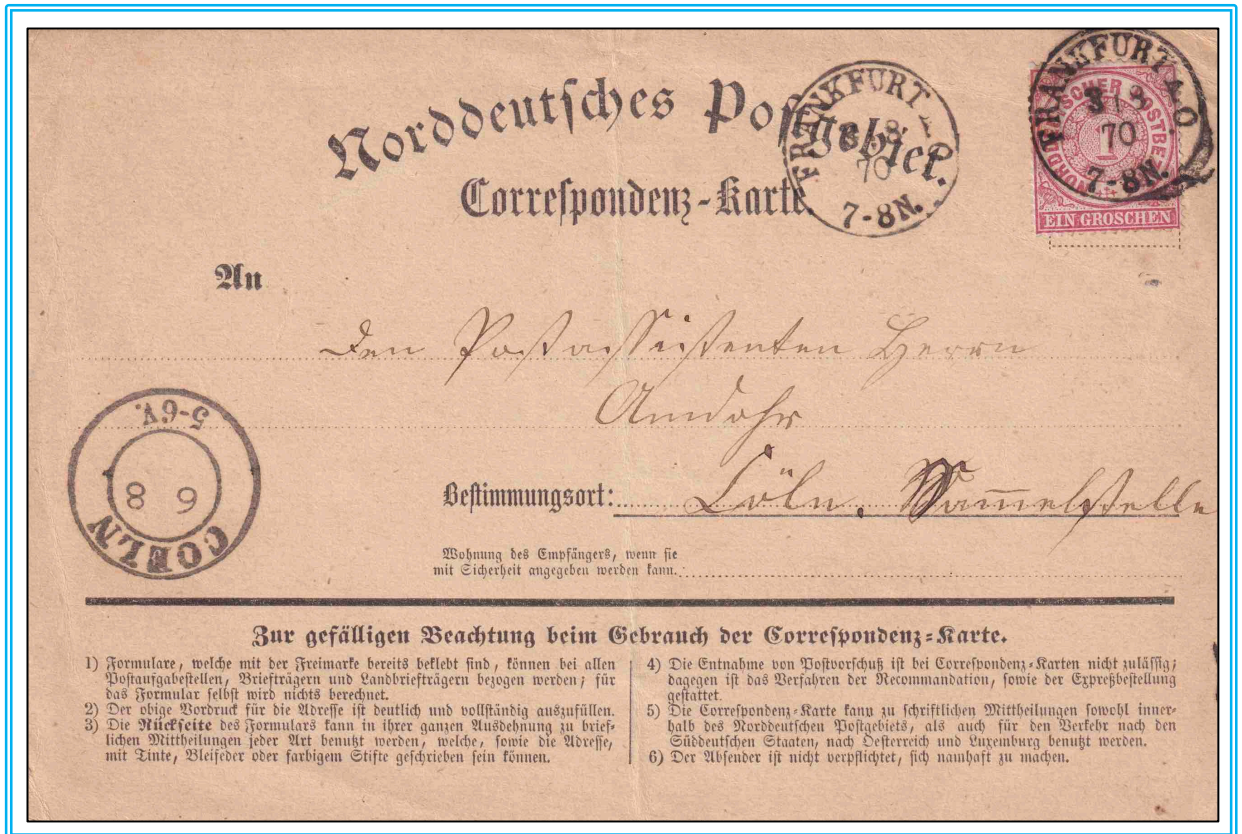 Norddeutsches Postgebiet.
Correspondenz-Karte.
FRANKFURT A.O.
8 8
70
7-8N.
FRANKFURT A.O.
8 8
70
7-8N.
NORDDEUTSCHER POSTBEZIRK
1
EIN GROSCHEN
An
Den Postassistenten Herrn
Amdohr
5-6V.
9 8
COELN
Bestimmungsort: Cöln. Sam̅elstelle
Wohnung des Empfängers, wenn sie
mit Sicherheit angegeben werden kann.
Zur gefälligen Beachtung beim Gebrauch der Correspondenz-Karte.
1) Formulare, welche mit der Freimarke bereits beklebt sind, können bei allen
Postaufgabestellen, Briefträgern und Landbriefträgern bezogen werden; für
das Formular selbst wird nichts berechnet.
2) Der obige Vordruck für die Adresse ist deutlich und vollständig auszufüllen.
3) Die Rückseite des Formulars kann in ihrer ganzen Ausdehnung zu brief-
lichen Mittheilungen jeder Art benutzt werden, welche, sowie die Adresse,
mit Tinte, Bleifeder oder farbigem Stifte geschrieben sein können.
4) Die Entnahme von Postvorschuß ist bei Correspondenz-Karten nicht zulässig;
dagegen ist das Verfahren der Recommandation, sowie der Expreßbestellung
gestattet.
5) Die Correspondenz-Karte kann zu schriftlichen Mittheilungen sowohl inner-
halb des Norddeutschen Postgebiets, als auch für den Verkehr nach den
Süddeutschen Staaten, nach Oesterreich und Luxemburg benutzt werden.
6) Der Absender ist nicht verpflichtet, sich namhaft zu machen.